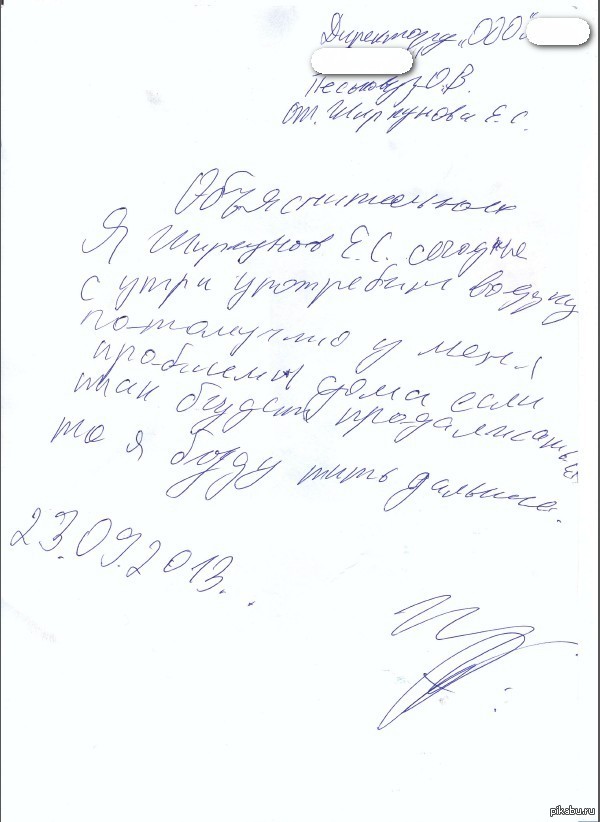 Директору "ООО"
Песькову О.В.
от. Ширкунова Е.С.
Объяснительная
Я Ширкунов Е.С. сегодне
с утри употребил водку
потомучто у меня
проблемы дома если
так будет продалжаться
то я буду пить дальше.
23.09.2013.
pikabu.ru